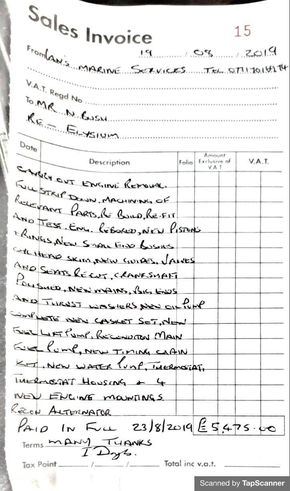 Sales Invoice
15
19 / 08 / 2019
From IAN'S MARINE SERVICES TEL
V.A.T. Regd No
To MR N BUSH
RE - ELYSIUM
Date Description Folio Amount Exclusive of V.A.T. V.A.T.
CARRY OUT ENGINE REMOVAL
FULL STRIP DOWN, MACHINING OF
RELEVANT PARTS, RE BUILD, RE-FIT
AND TEST. ENG. REBORED, NEW PISTONS
& RINGS, NEW SMALL END BUSHES
CYL HEAD SKIM, NEW GUIDES, VALVES
AND SEATS RECUT, CRANKSHAFT
POLISHED, NEW MAINS, BIG ENDS
AND THRUST WASHERS, NEW OIL PUMP
COMPLETE NEW GASKET SET, NEW
FUEL LIFT PUMP, RECONDITION MAIN
FUEL PUMP, NEW TIMING CHAIN
KIT, NEW WATER PUMP, THERMOSTAT,
THERMOSTAT HOUSING & 4
NEW ENGINE MOUNTINGS.
RECON ALTERNATOR
PAID IN FULL 23/8/2019 £5,475.00
Terms MANY THANKS
Tax Point / / Total inc v.a.t.
Scanned by TapScanner